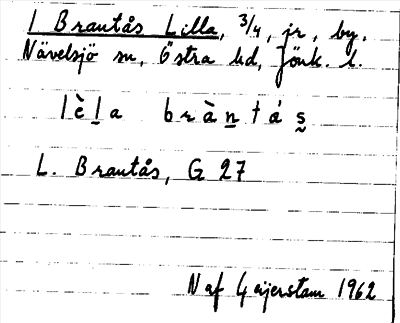 1 Brantås Lilla, 3/4, jr, by.
Nävelsjö sn, Östra hd, Jönk. l.
lèl̲a bràn̲tás̰
L. Brantås, G 27
N af Geijerstam 1962